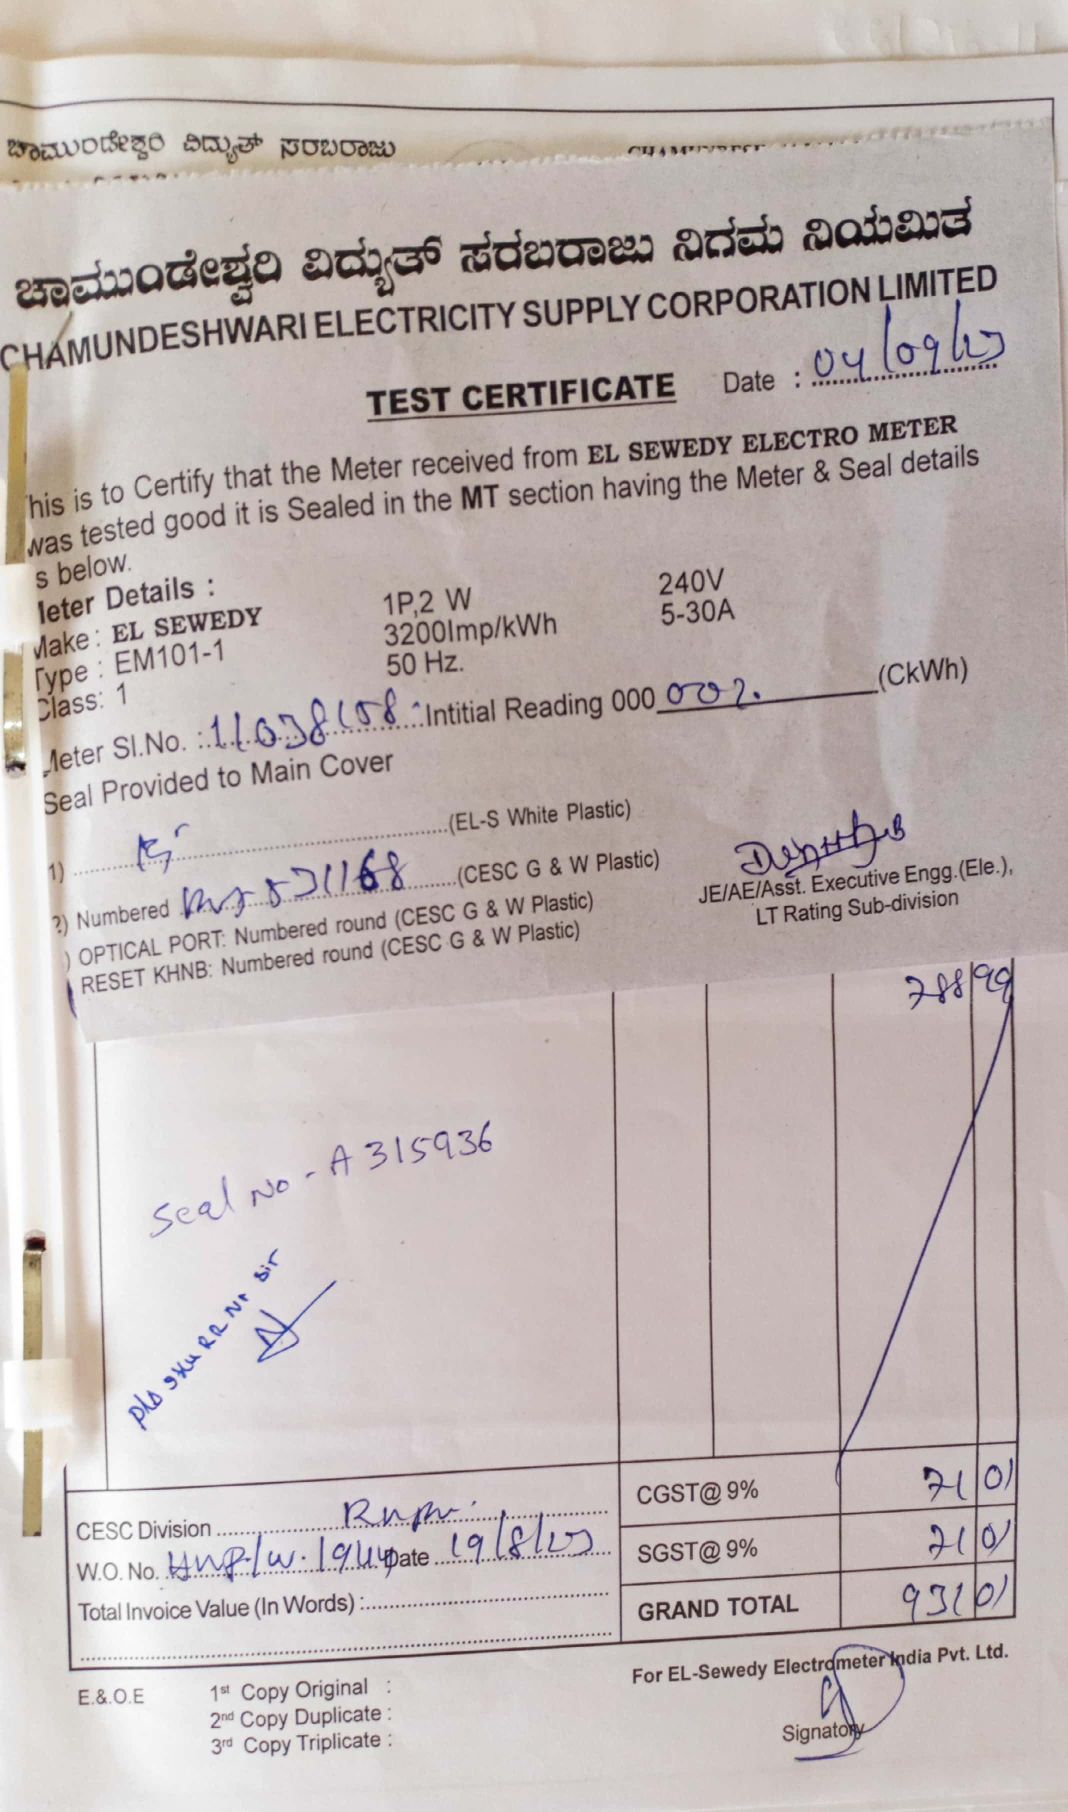 ಚಾಮುಂಡೇಶ್ವರಿ ವಿದ್ಯುತ್ ಸರಬರಾಜು
ಚಾಮುಂಡೇಶ್ವರಿ ವಿದ್ಯುತ್ ಸರಬರಾಜು ನಿಗಮ ನಿಯಮಿತ
CHAMUNDESHWARI ELECTRICITY SUPPLY CORPORATION LIMITED
TEST CERTIFICATE Date : 04/09/23
his is to Certify that the Meter received from EL SEWEDY ELECTRO METER
was tested good it is Sealed in the MT section having the Meter & Seal details
s below.
leter Details :
Make : EL SEWEDY 1P,2 W 240V
Type : EM101-1 3200Imp/kWh 5-30A
Class: 1 50 Hz.
Meter Sl.No. : 11038108 Intitial Reading 000 002. (CkWh)
Seal Provided to Main Cover
1) (EL-S White Plastic)
2) Numbered (CESC G & W Plastic)
) OPTICAL PORT: Numbered round (CESC G & W Plastic)
RESET KHNB: Numbered round (CESC G & W Plastic)
JE/AE/Asst. Executive Engg.(Ele.),
LT Rating Sub-division
788 99
Seal No - A 315936
RR No sir
CGST@ 9% 71 01
SGST@ 9% 71 01
GRAND TOTAL 931 01
CESC Division
W.O. No. Date 19/8/23
Total Invoice Value (In Words) :
For EL-Sewedy Electrometer India Pvt. Ltd.
Signatory
E.&.O.E 1st Copy Original :
2nd Copy Duplicate :
3rd Copy Triplicate :